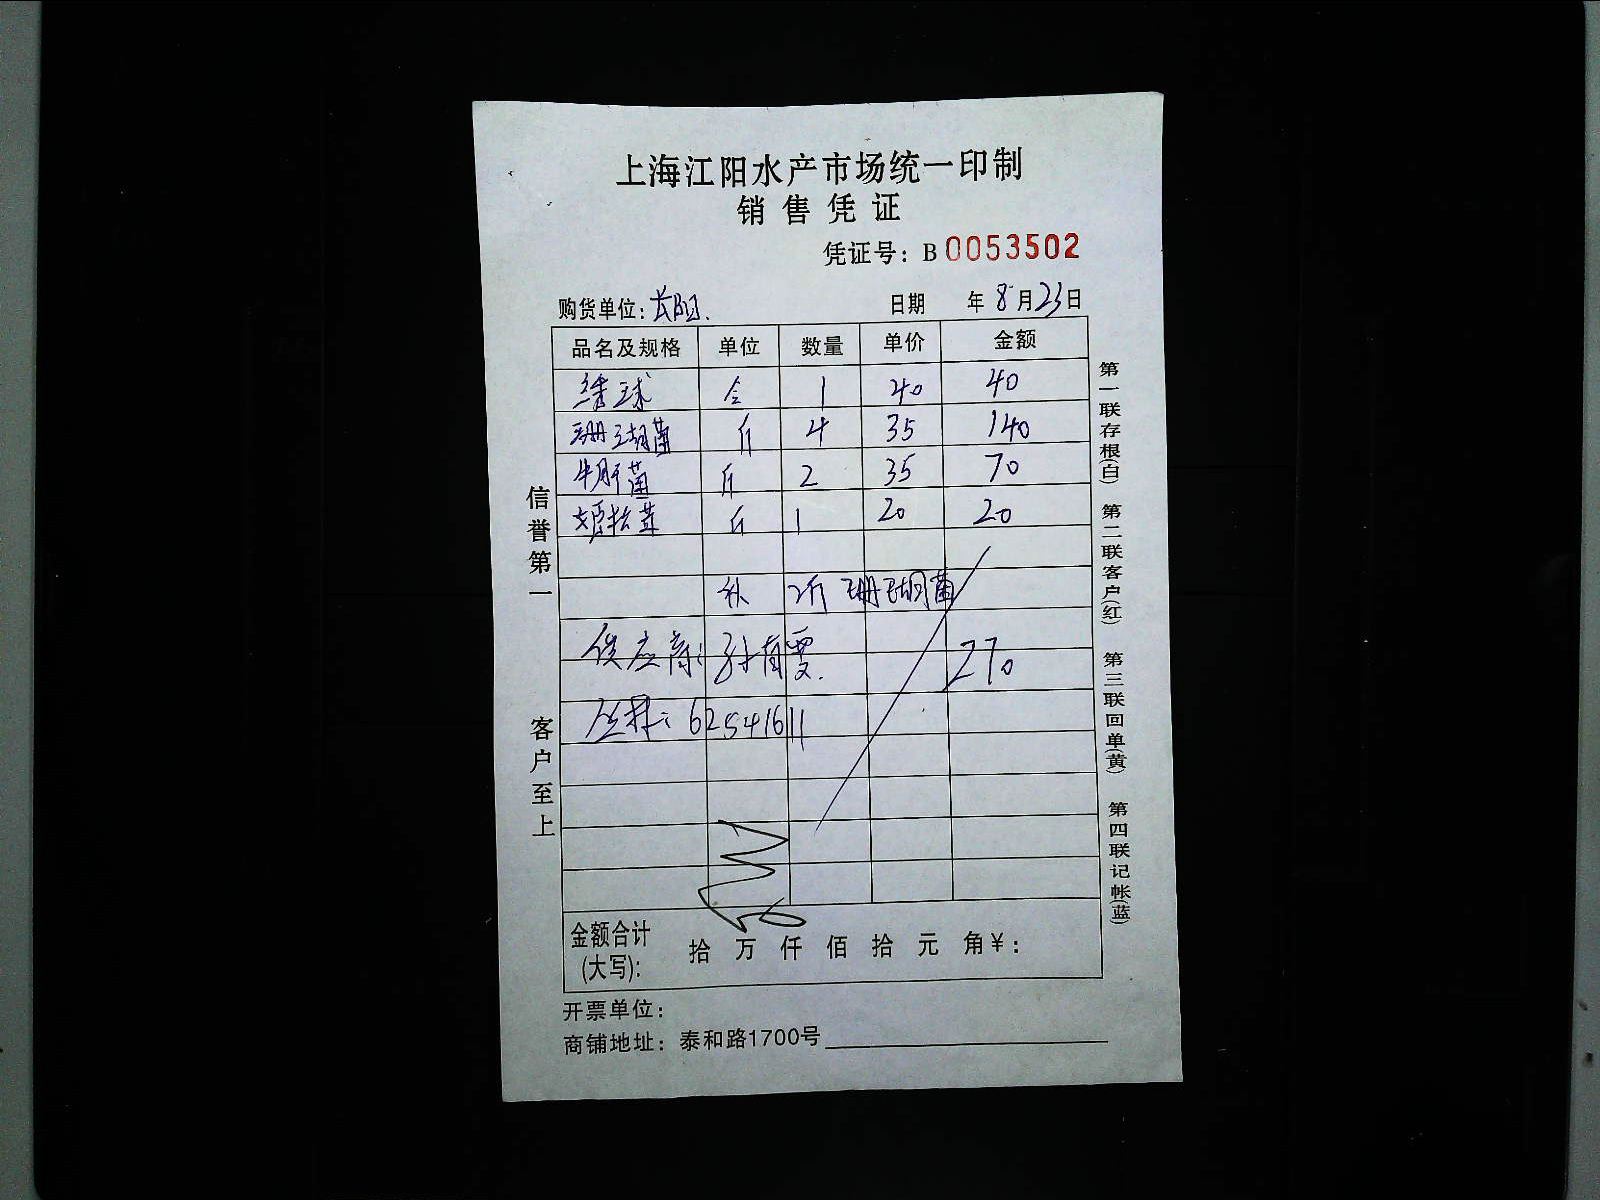 上海江阳水产市场统一印制
销售凭证
凭证号：B 0053502
购货单位：长阳.
日期 年 8月23日
品名及规格 单位 数量 单价 金额
绣球 1 40 40
珊瑚菌 斤 4 35 140
牛肝菌 斤 2 35 70
姬松茸 斤 1 20 20
补 2斤 珊瑚菌
供应商： 270
62541611
金额合计
(大写)：
拾 万 仟 佰 拾 元 角￥：
开票单位：
商铺地址：泰和路1700号
信誉第一 客户至上
第一联存根(白) 第二联客户(红) 第三联回单(黄) 第四联记帐(蓝)